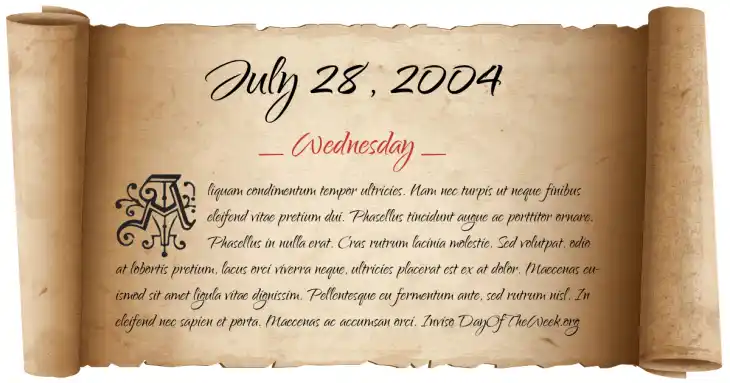 July 28, 2004
_ Wednesday _
Aliquam condimentum tempor ultricies. Nam nec turpis ut neque finibus
eleifend vitae pretium dui. Phasellus tincidunt augue ac porttitor ornare.
Phasellus in nulla erat. Cras rutrum lacinia molestie. Sed volutpat, odio
at lobortis pretium, lacus orci viverra neque, ultricies placerat est ex at dolor. Maecenas eu-
ismod sit amet ligula vitae dignissim. Pellentesque eu fermentum ante, sed rutrum nisl. In
eleifend nec sapien et porta. Maecenas ac accumsan orci. Inviso DayOfTheWeek.org